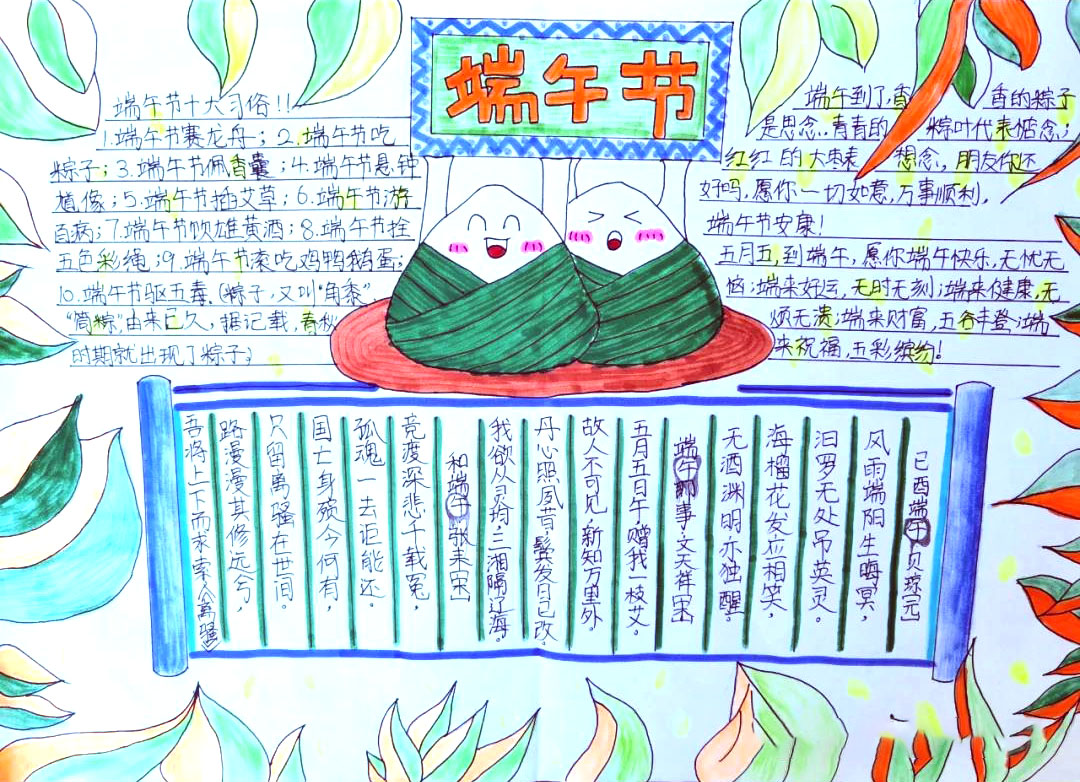 端午节
端午节十大习俗!!
1.端午节赛龙舟;2.端午节吃
粽子;3.端午节佩香囊;4.端午节悬钟
馗像;5.端午节插艾草;6.端午节游
百病;7.端午节饮雄黄酒;8.端午节拴
五色彩绳;9.端午节滚吃鸡鸭鹅蛋;
10.端午节驱五毒。(粽子,又叫"角黍"
"筒粽",由来已久,据记载,春秋
时期就出现了粽子;
端午到了,香香的粽子
是思念,青青的粽叶代表惦念,;
红红的大枣想念,朋友你还
好吗,愿你一切如意,万事顺利,
端午节安康!
五月五,到端午,愿你端午快乐,无忧无
恼;端来好运,无时无刻;端来健康,无
烦无溃;端来财富,五谷丰登;端
来祝福,五彩缤纷!
己酉端午贝琼[元]
风雨端阳生晦冥,
汨罗无处吊英灵。
海榴花发应相笑,
无酒渊明亦独醒。
端午即事·文天祥[宋]
五月五日午,赠我一枝艾。
故人不可见,新知万里外。
丹心照夙昔,鬓发日已改。
我欲从灵均,三湘隔辽海。
和端午张耒[宋]
竞渡深悲千载冤,
孤魂一去讵能还。
国亡身殒今何有,
只留离骚在世间。
路漫漫其修远兮,
吾将上下而求索《离骚》